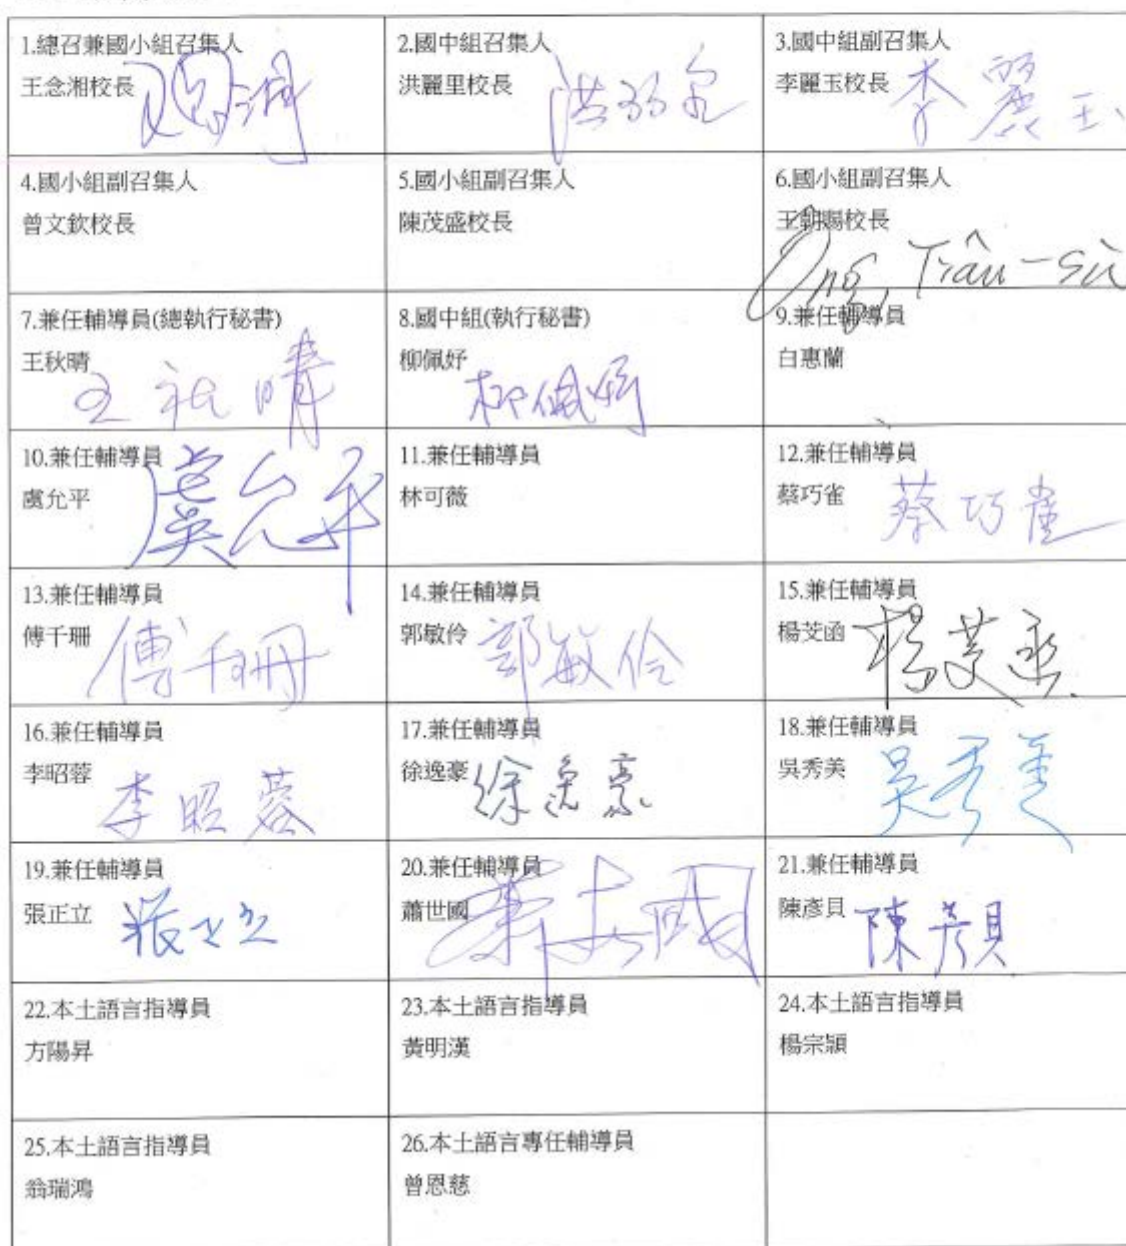 1.總召兼國小組召集人
王念湘校長
2.國中組召集人
洪麗里校長
洪
3.國中組副召集人
李麗玉校長
李麗玉
4.國小組副召集人
曾文欽校長
5.國小組副召集人
陳茂盛校長
6.國小組副召集人
王朝賜校長
Ong, Tiâu-sù
7.兼任輔導員(總執行秘書)
王秋晴
王秋晴
8.國中組(執行秘書)
柳佩妤
柳佩妤
9.兼任輔導員
白惠蘭
10.兼任輔導員
虞允平
虞允平
11.兼任輔導員
林可薇
12.兼任輔導員
蔡巧雀
蔡巧雀
13.兼任輔導員
傅千珊
傅千珊
14.兼任輔導員
郭敏伶
郭敏伶
15.兼任輔導員
楊芠函
楊芠函
16.兼任輔導員
李昭蓉
李昭蓉
17.兼任輔導員
徐逸豪
徐逸豪
18.兼任輔導員
吳秀美
吳秀美
19.兼任輔導員
張正立
張正立
20.兼任輔導員
蕭世國
蕭世國
21.兼任輔導員
陳彥貝
陳彥貝
22.本土語言指導員
方陽昇
23.本土語言指導員
黃明漢
24.本土語言指導員
楊宗頴
25.本土語言指導員
翁瑞鴻
26.本土語言專任輔導員
曾恩慈